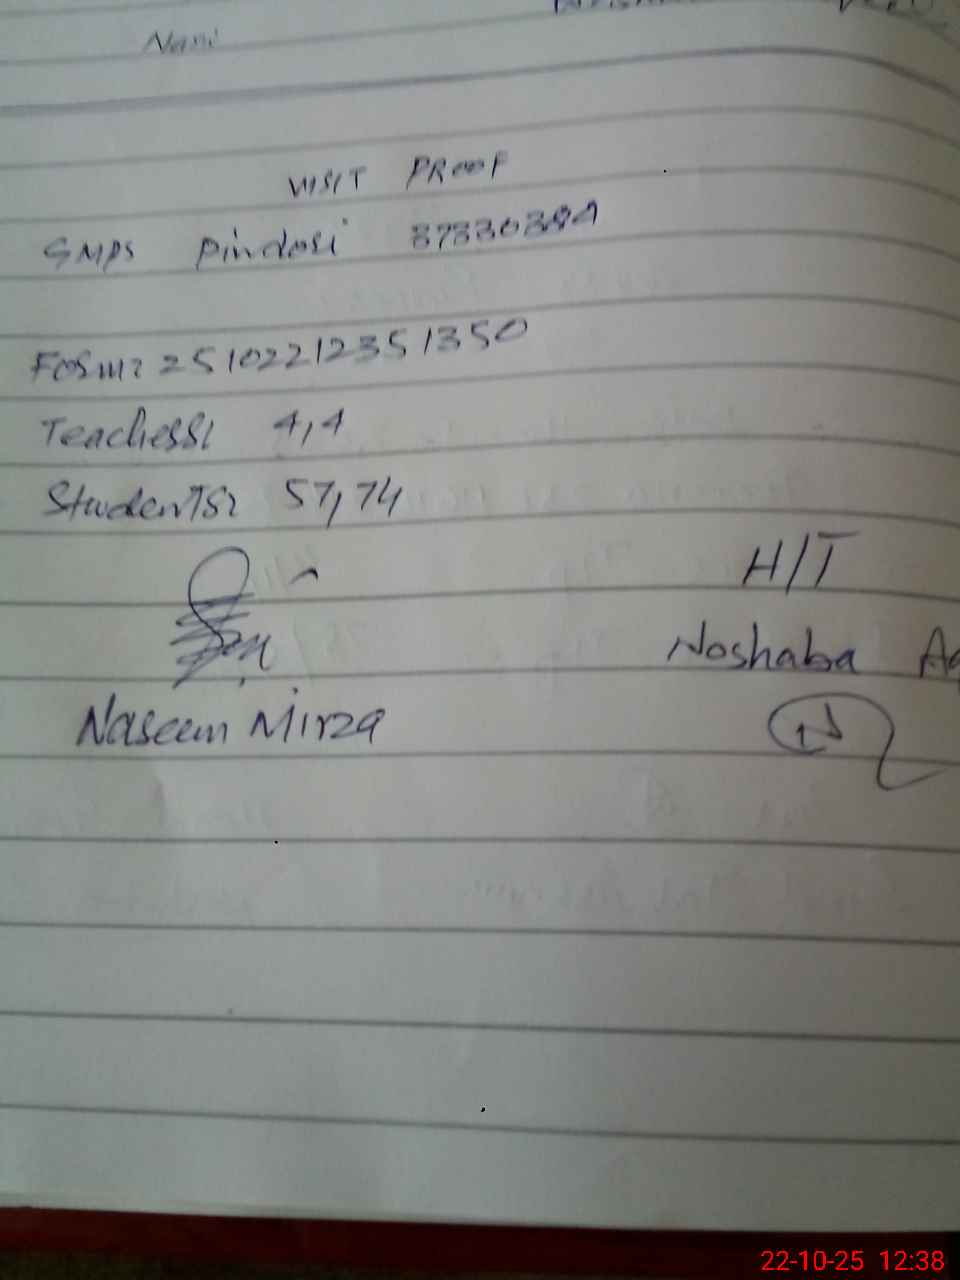 Nasi
VISIT PROOF
GMPS Pindosi 37330384
Form: 2510221235 1350
Teachers: 4,4
Students: 57,74
H/T
Noshaba
Naseem Mirza
22-10-25 12:38